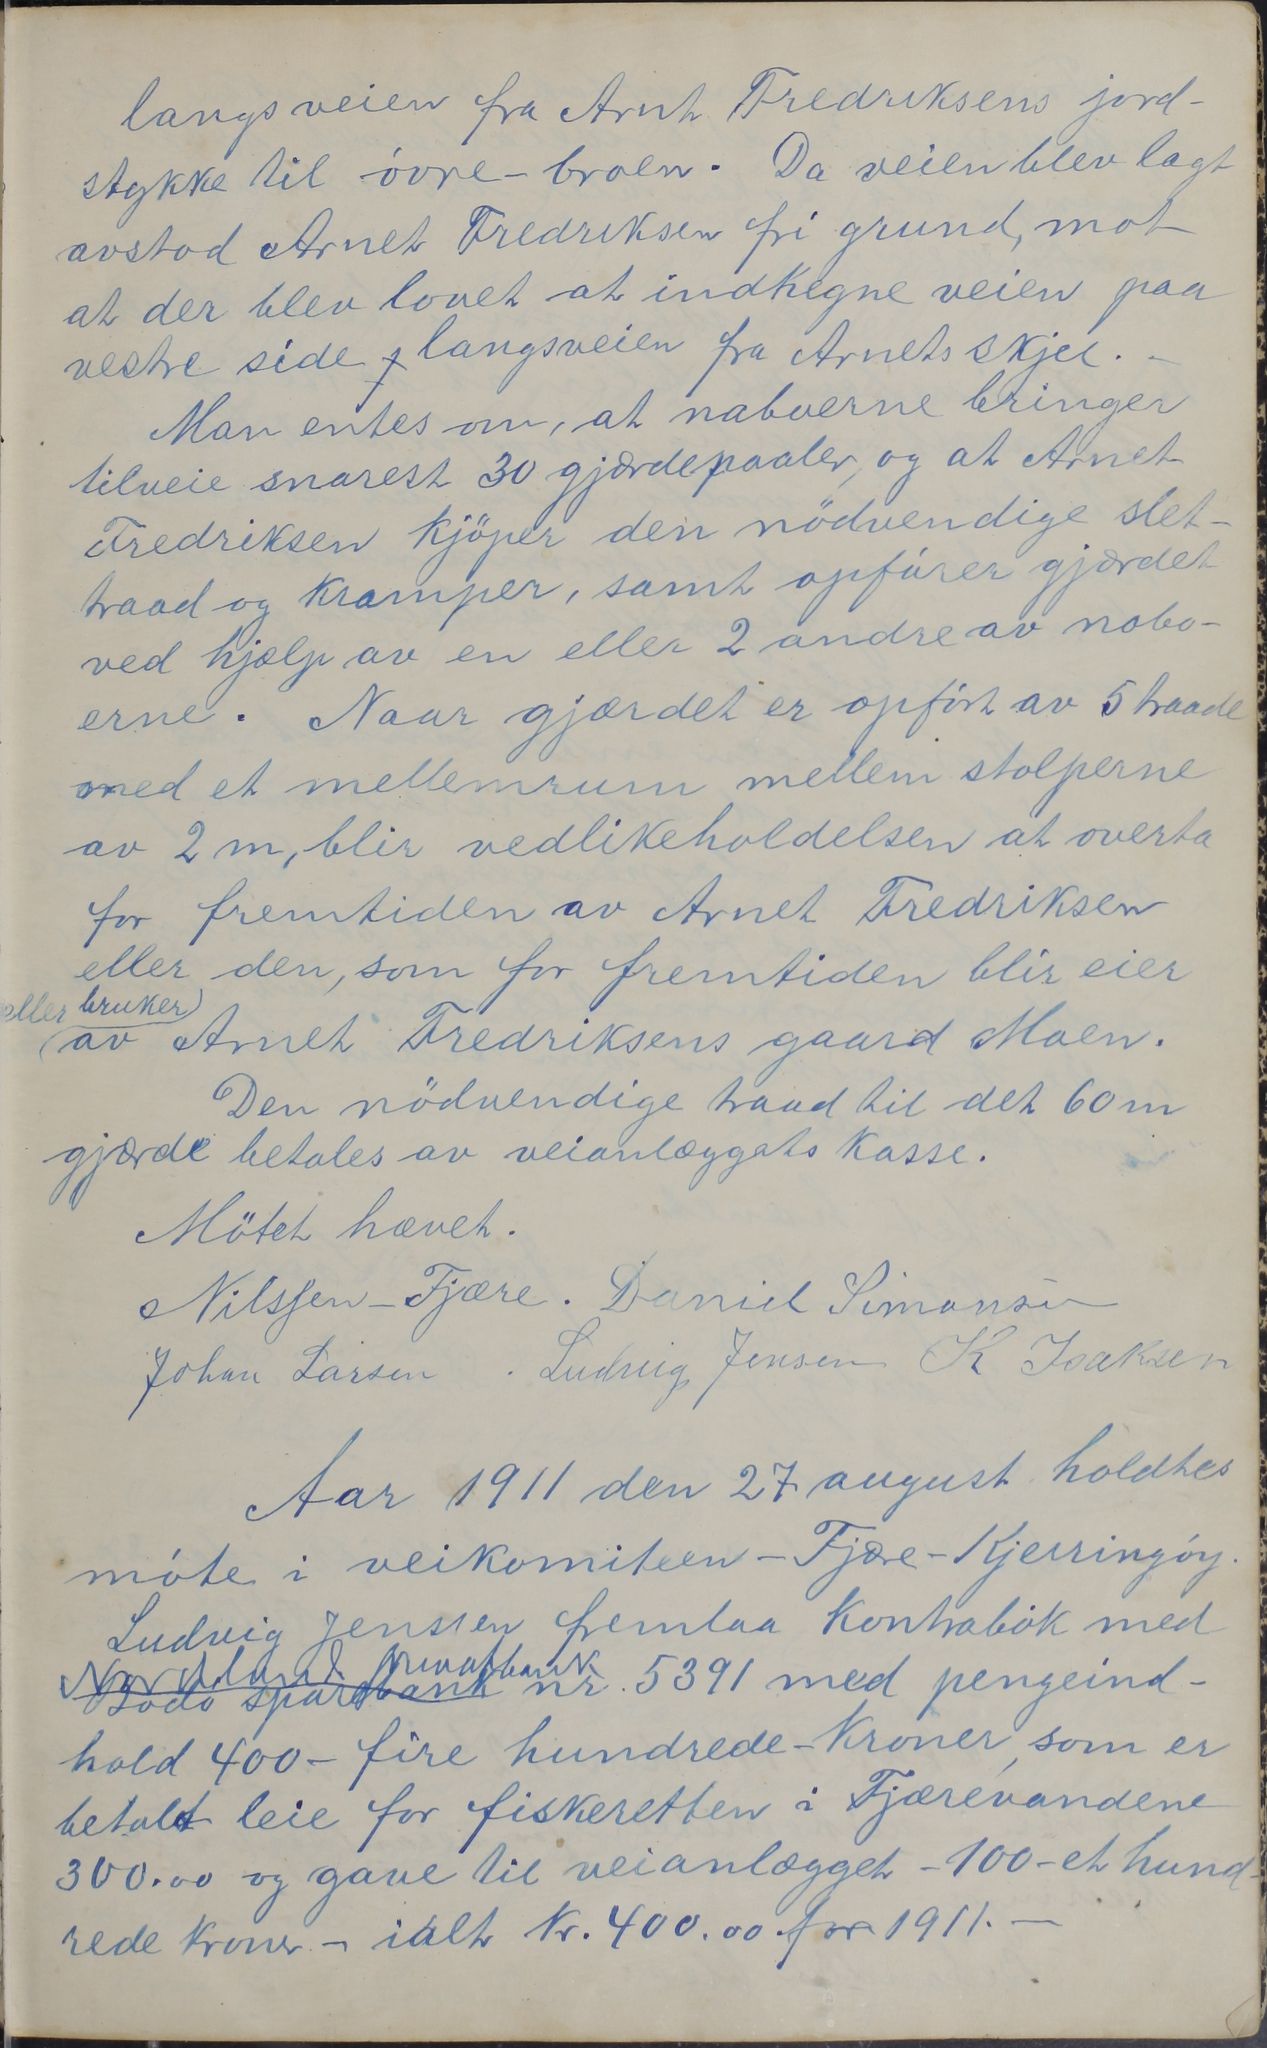 langs veien fra Arnt Fredriksens jord-
stykke til övre-broen. Da veien blev lagt
avstod Arnet Fredriksen fri grund, mot
at der blev lovet at indhegne veien paa
vestre side langsveien fra Arnets skjel. -
Man entes om, at naboerne bringer
tilveie snarest 30 gjærdepaaler, og at Arnet
Fredriksen kjöper den nödvendige slet-
traad og kramper, samt opförer gjærdet
ved hjælp av en eller 2 andre av nabo-
erne. Naar gjærdet er opfört av 5 traade
med et mellemrum mellem stolperne
av 2 m, blir vedlikeholdelsen at overta
for fremtiden av Arnet Fredriksen
eller den, som for fremtiden blir eier
eller bruker
av Arnet Fredriksens gaard Moen.
Den nödvendige traad til det 60 m
gjærde betales av veianlæggets kasse.
Mötet hævet.
Nilssen-Fjære. Daniel Simonsen
Johan Larsen. Ludvig Jensen K Isaksen
Aar 1911 den 27 august holdtes
möte i veikomiteen - Fjære - Kjerringöy.
Ludvig Jenssen fremlaa kontrabok med
Nordlands privatbank
Bodö sparebank nr. 5391 med pengeind-
hold 400 - fire hundrede - kroner, som er
betalt leie for fiskeretten i Fjærevandene
300.00 og gave til veianlægget - 100 - et hund-
rede kroner - ialt kr. 400.00 for 1911. -